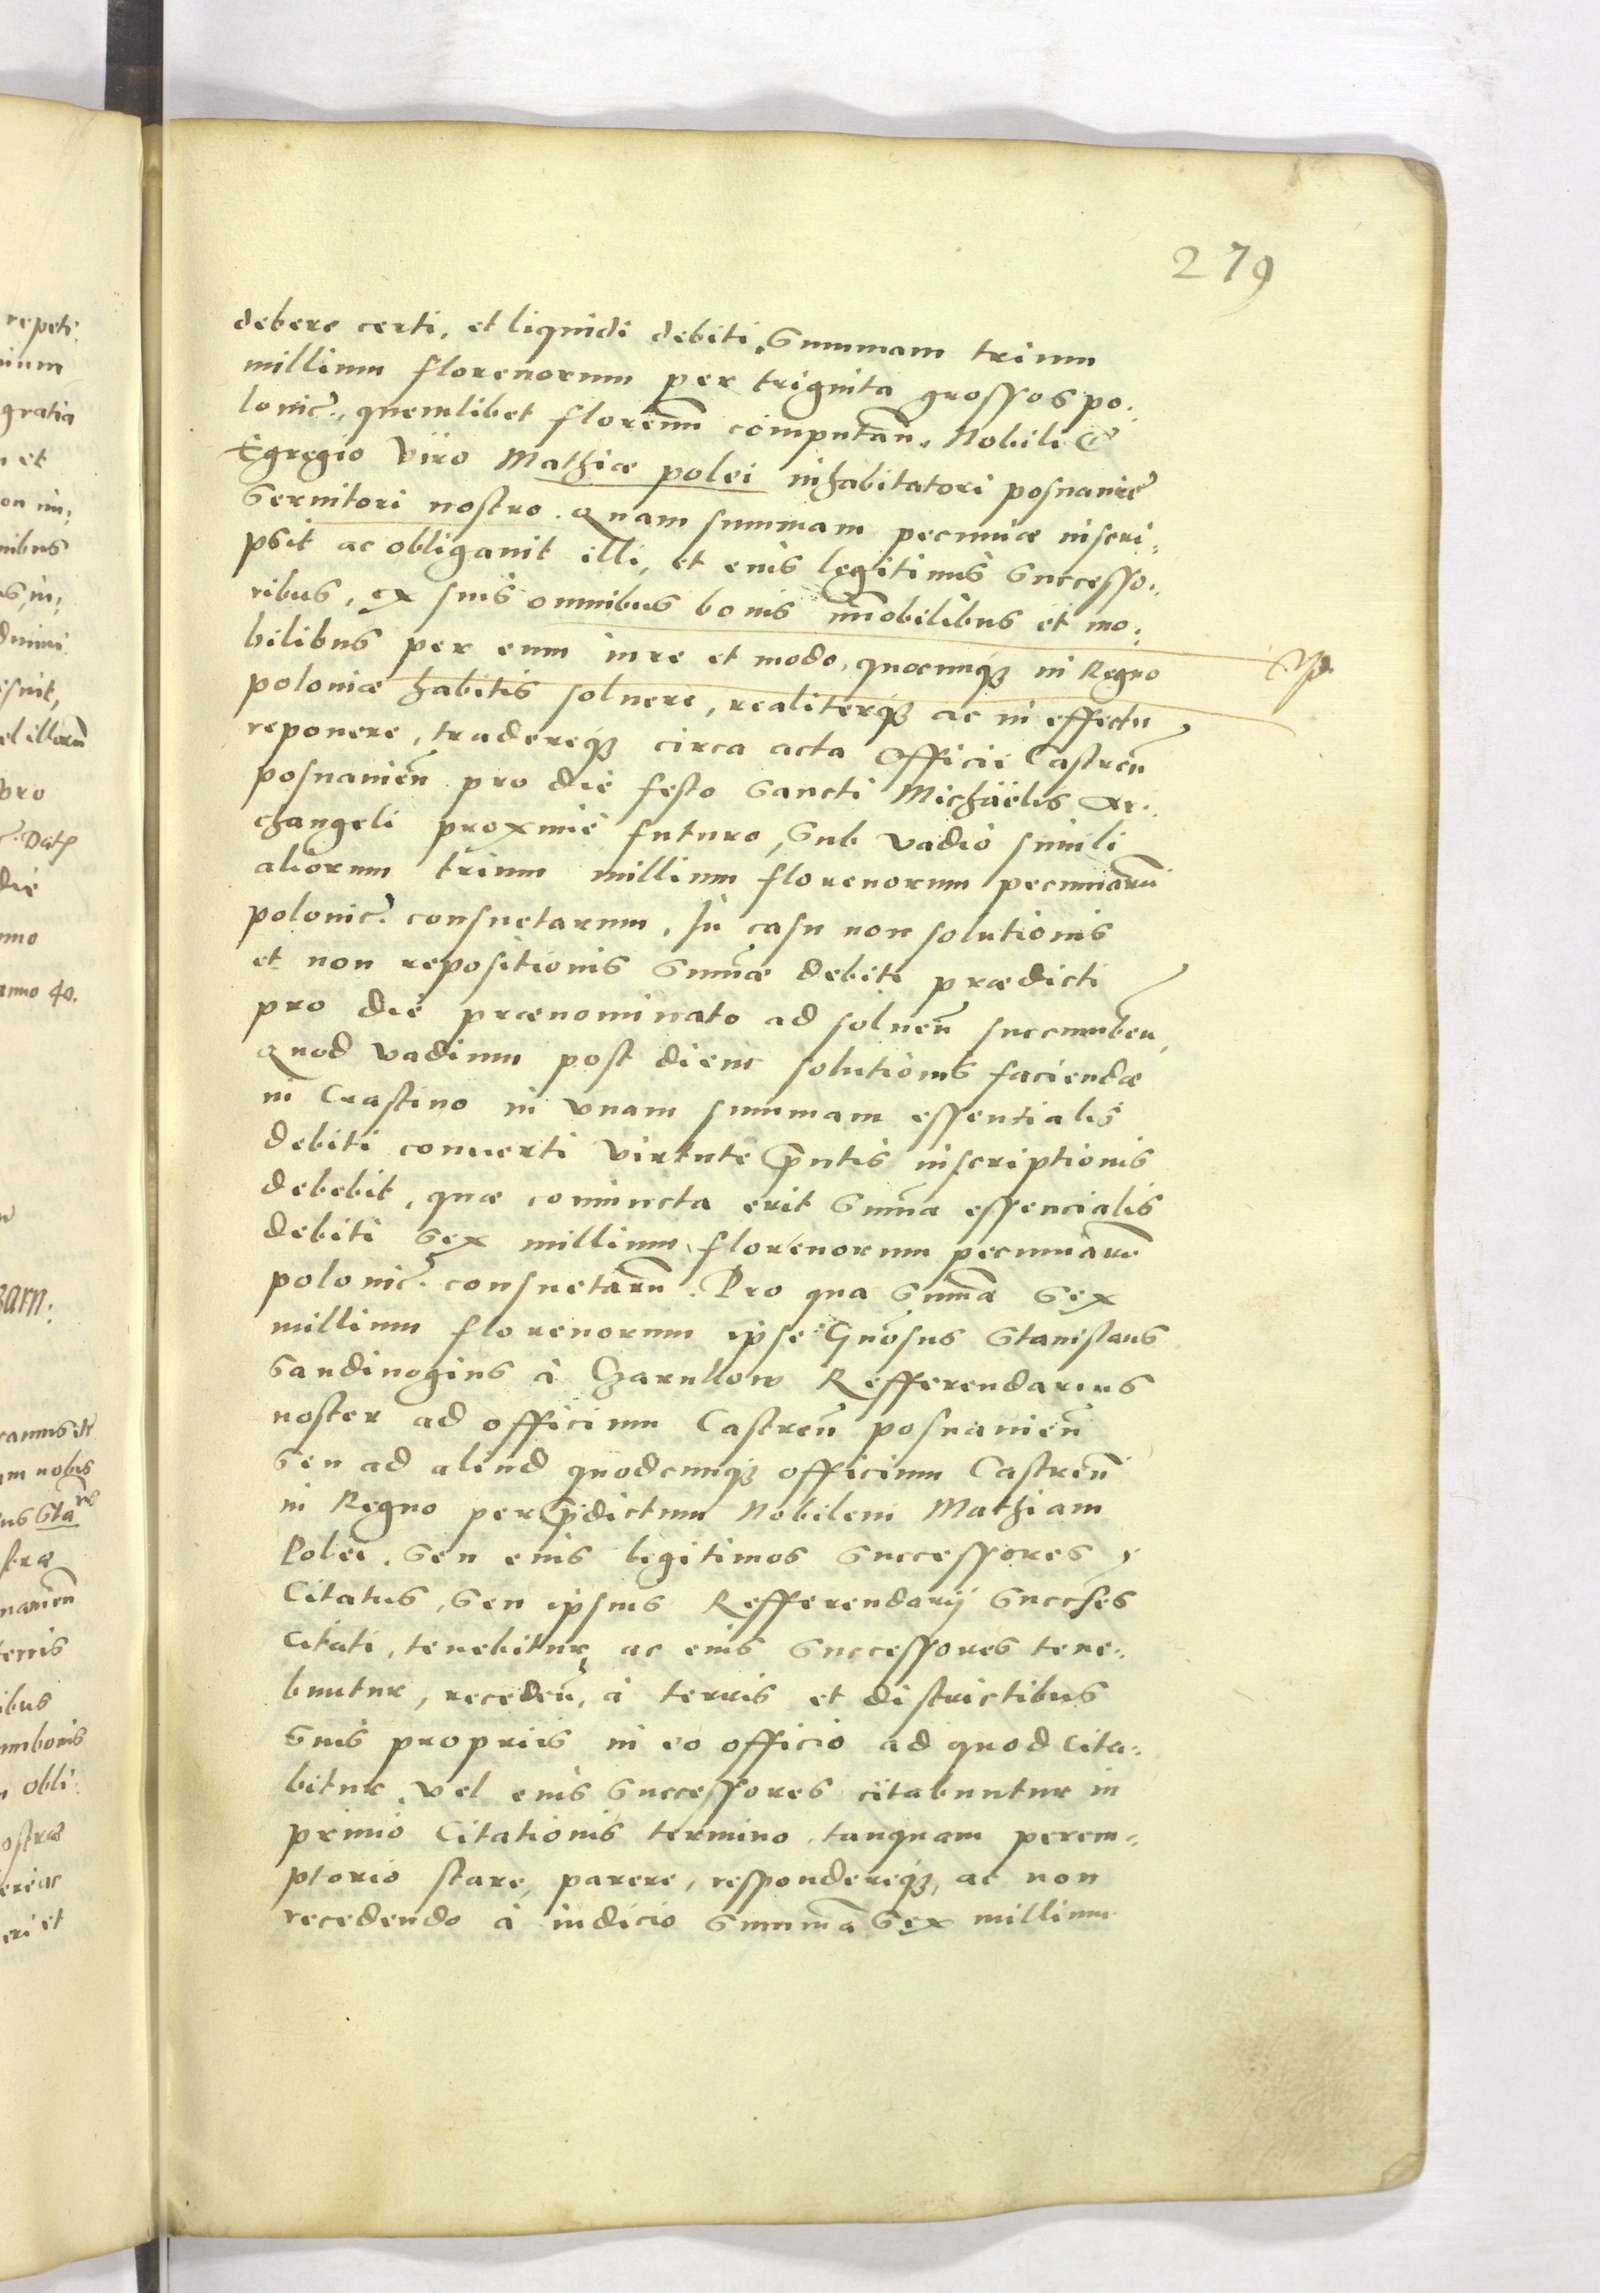 279
debere certi, et liquidi debiti, Summam trium
millium florenorum per triginta grossos po:
lonic., quemlibet florenum computan. Nobili &
Egregio Viro Mathiæ polei inhabitatori posnanien
Servitori nostro. Quam summam pecuniæ inscri:
psit ac obligavit illi, et eius legitimis Successo:
ribus, ex suis omnibus bonis immobilibus et mo:
bilibus per eum iure et modo, quocunq3 in Regno
poloniæ habitis solvere, realiterq3 ac in effectu
reponere, tradereq3 circa acta Officii Castren
posnanien pro die festo Sancti Michaëlis Ar:
changeli proxime futuro, Sub vadio simili
aliorum trium millium florenorum pecuniarū
polonic. consuetarum. In casu non solutionis
et non repositionis Summæ debiti prædicti
pro die prænominato ad solven succumben,
Quod vadium post diem solutionis faciendæ
in Crastino in vnam summam essentialis
debiti converti virtute p̄ntis inscriptionis
debebit, quæ coniuncta erit Summa essencialis
debiti Sex millium florenorum pecuniarū
polonic. consuetarū. Pro qua Summa Sex
millium florenorum ipse Gn̄osus Stanislaus
Sandivogius à Czarnkow Refferendarius
noster ad officium Castren posnanien
Seu ad aliud quodcunq3 officium Castren
in Regno per p̄dictum Nobilem Mathiam
Polei, Seu eius legitimos Successores,
Citatus, Seu ipsius Refferendarij Succ̄ses
Citati, tenebitur, ac eius Successores tene:
buntur, receden, à terris et districtibus
Suis propriis in eo officio ad quod Cita:
bitur, vel eius Successores citabuntur in
primo Citationis termino tanquam perem:
ptorio stare, parere, respondereq3, ac non
recedendo à iudicio Summā Sex millium